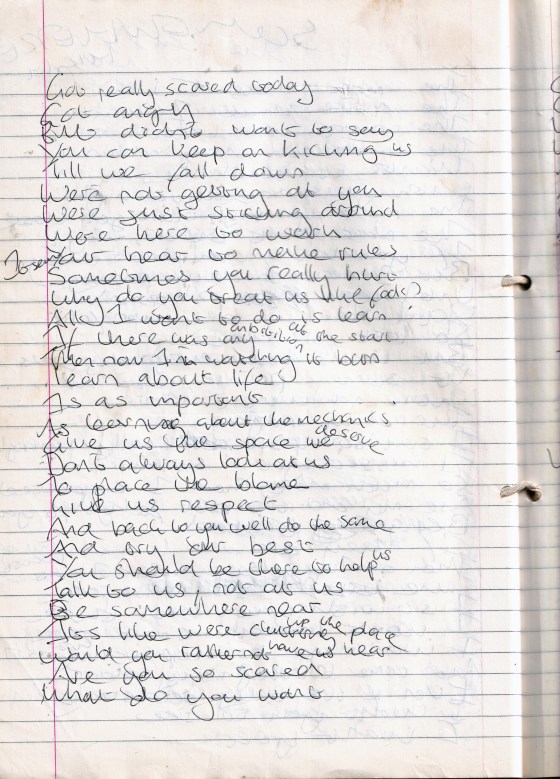 Got really scared today
Got angry
But didn't want to say
You can keep on kicking us
Till we fall down
Were not getting at you
Were just sticking around
Were here to work
Your hear to make rules
Sometimes you really hurt
Why do you treat us like fools?
All I want to do is learn
If there was any ambition at the start
Then now I'm watching it burn
Learn about life
Is as important
As learning about the mechanics
Give us the space we deserve
Don't always look at us
To place the blame
Give us respect
And back to you well do the same
And try our best
You should be there to help us
Talk to us, not at us
Be somewhere near
Its like were cluttering up the place
Would you rather not have us near
Are you so scared
What do you want